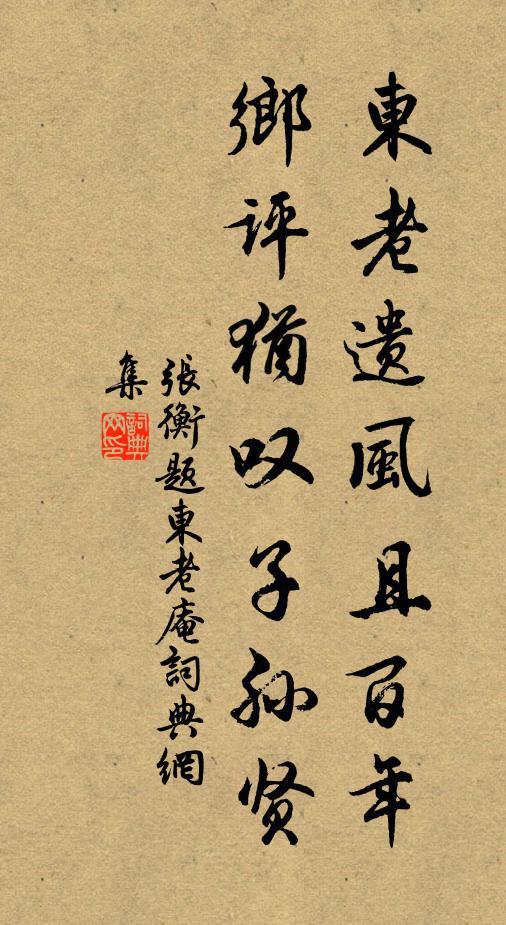 東老遺風且百年
鄉評猶叹子孙贤
張衡題東老庵詞典網
集
詞典網印